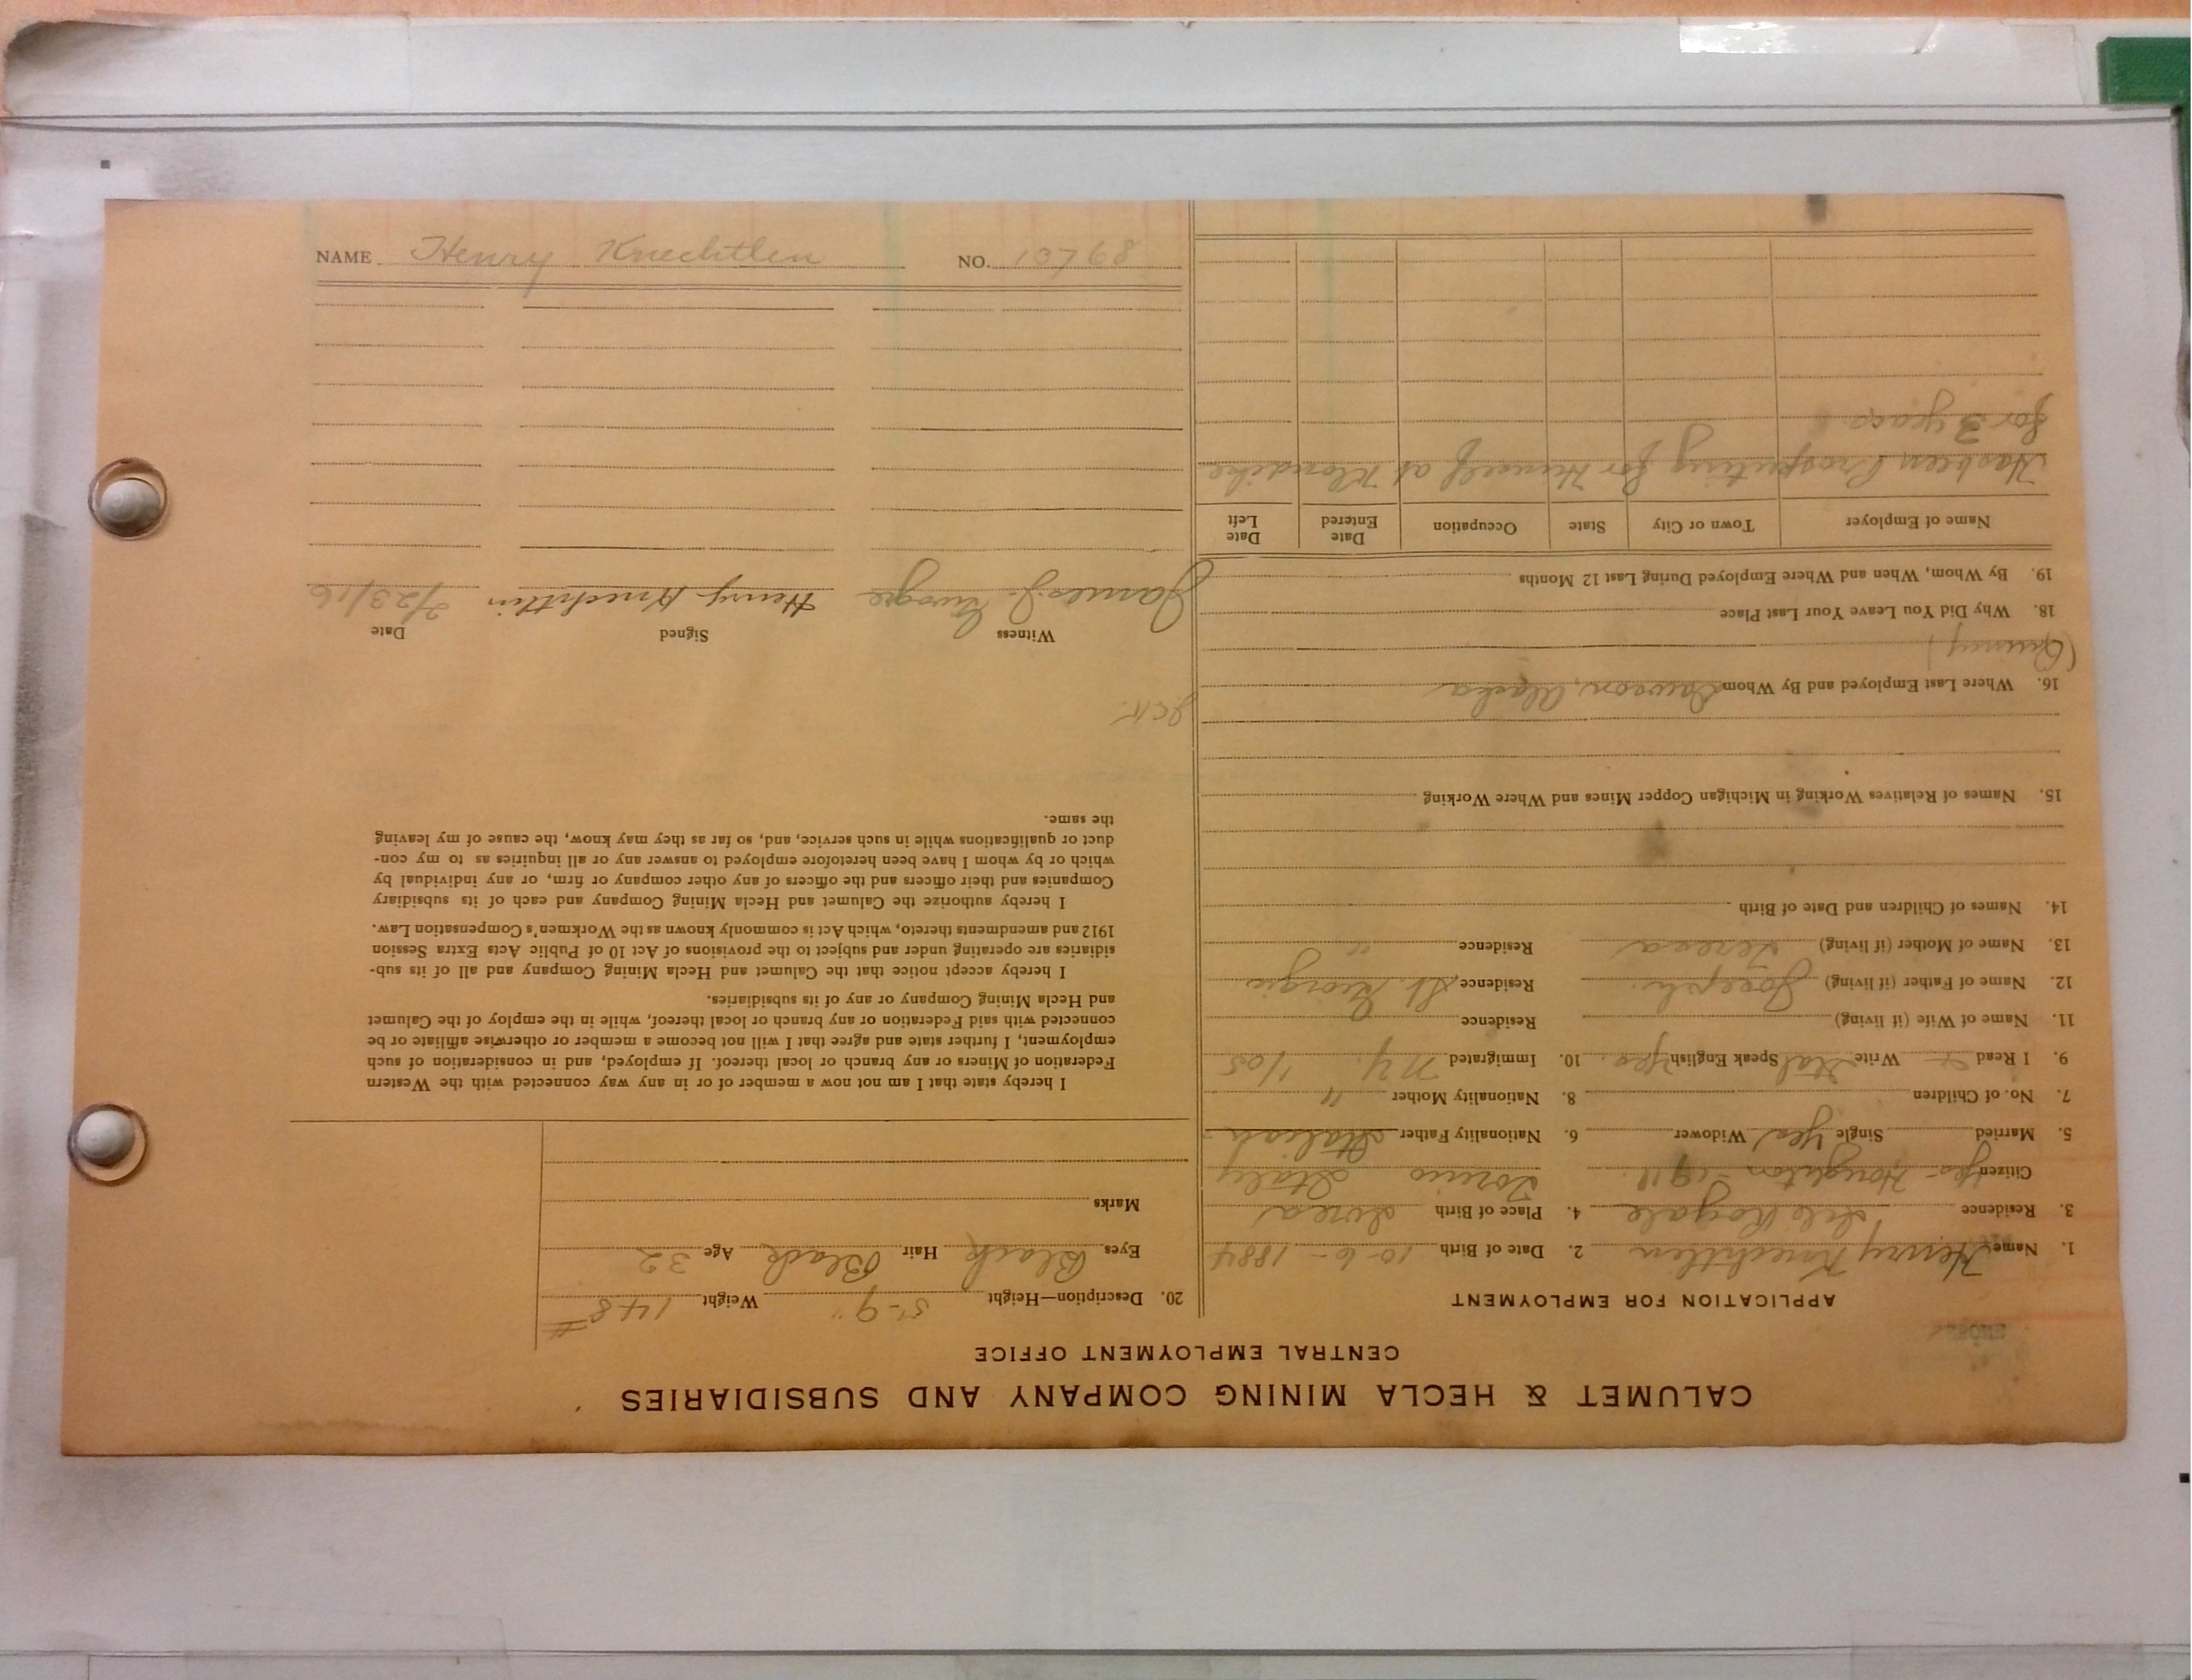 CALUMET & HECLA MINING COMPANY AND SUBSIDIARIES
CENTRAL EMPLOYMENT OFFICE
APPLICATION FOR EMPLOYMENT
1. Name Henry Knechtlen 2. Date of Birth 10-6-1884
3. Residence Isle Royale 4. Place of Birth Ivrea
Citizen Yes - Houghton - 1911. Torino Italy
5. Married Single Yes Widower 6. Nationality Father Italian
7. No. of Children 8. Nationality Mother "
9. I Read Write Ital Speak English Yes. 10. Immigrated N.Y. 1/05
11. Name of Wife (if living) Residence
12. Name of Father (if living) Joseph. Residence St. Giorgio
13. Name of Mother (if living) Teresa Residence "
14. Names of Children and Date of Birth
15. Names of Relatives Working in Michigan Copper Mines and Where Working
16. Where Last Employed and By Whom Dawson, Alaska
(Quincy)
18. Why Did You Leave Your Last Place
19. By Whom, When and Where Employed During Last 12 Months
Name of Employer Town or City State Occupation Date Entered Date Left
Has been Prospecting for Himself at Klondike
for 3 years
20. Description—Height 5'-9" Weight 148#
Eyes Black Hair Black Age 32
Marks
I hereby state that I am not now a member of or in any way connected with the Western
Federation of Miners or any branch or local thereof. If employed, and in consideration of such
employment, I further state and agree that I will not become a member or otherwise affiliate or be
connected with said Federation or any branch or local thereof, while in the employ of the Calumet
and Hecla Mining Company or any of its subsidiaries.
I hereby accept notice that the Calumet and Hecla Mining Company and all of its sub-
sidiaries are operating under and subject to the provisions of Act 10 of Public Acts Extra Session
1912 and amendments thereto, which Act is commonly known as the Workmen's Compensation Law.
I hereby authorize the Calumet and Hecla Mining Company and each of its subsidiary
Companies and their officers and the officers of any other company or firm, or any individual by
which or by whom I have been heretofore employed to answer any or all inquiries as to my con-
duct or qualifications while in such service, and, so far as they may know, the cause of my leaving
the same.
Witness Signed Date
James J. Henry Knechtlen 2/23/16
NAME Henry Knechtlen NO. 10768